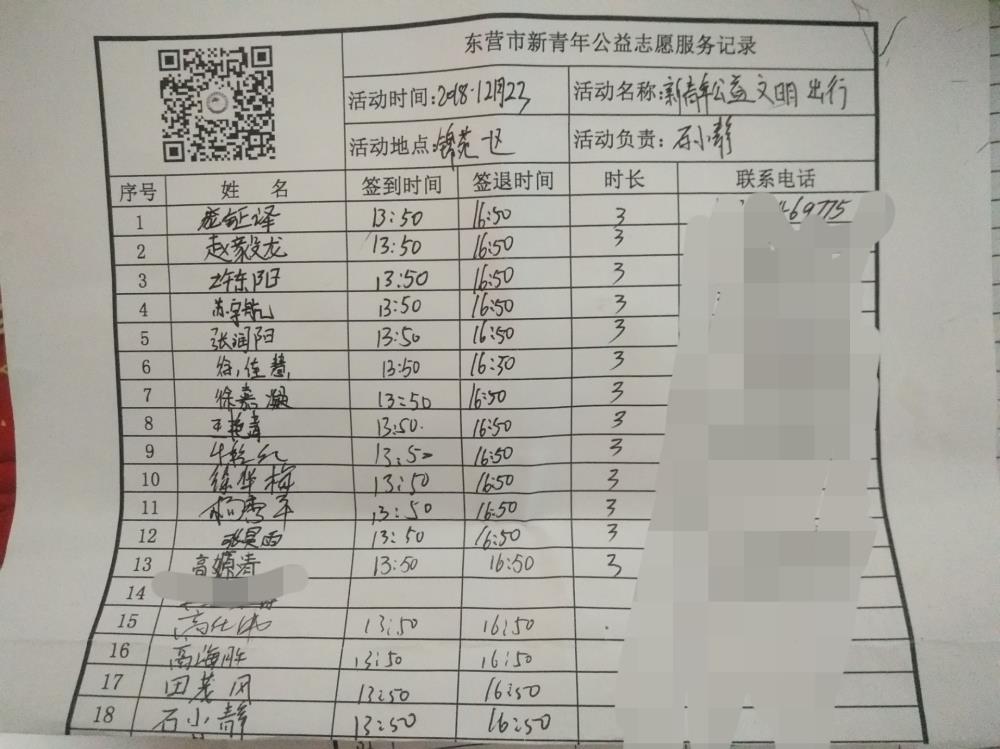 东营市新青年公益志愿服务记录
活动时间:2018.12月23 活动名称:新青年公益文明出行
活动地点:锦苑一区 活动负责:石小静
序号 姓名 签到时间 签退时间 时长 联系电话
1 13:50 16:50 3 69775
2 赵蒙龙 13:50 16:50 3
3 许东阳 13:50 16:50 3
4 苏宇航 13:50 16:50 3
5 张润阳 13:50 16:50 3
6 徐佳慧 13:50 16:30 3
7 徐嘉凝 13:50 16:50 3
8 王艳青 13:50. 16:50 3
9 13:50 16:50 3
10 徐华梅 13:50 16:50 3
11 杨雪平 13:50 16:50 3
12 13:50 16:50 3
13 高嫄清 13:50 16:50 3
14
15 高仕伟 13:50 16:50
16 高海胜 13:50 16:50
17 田茂风 13:50 16:50
18 石小静 13:50 16:50